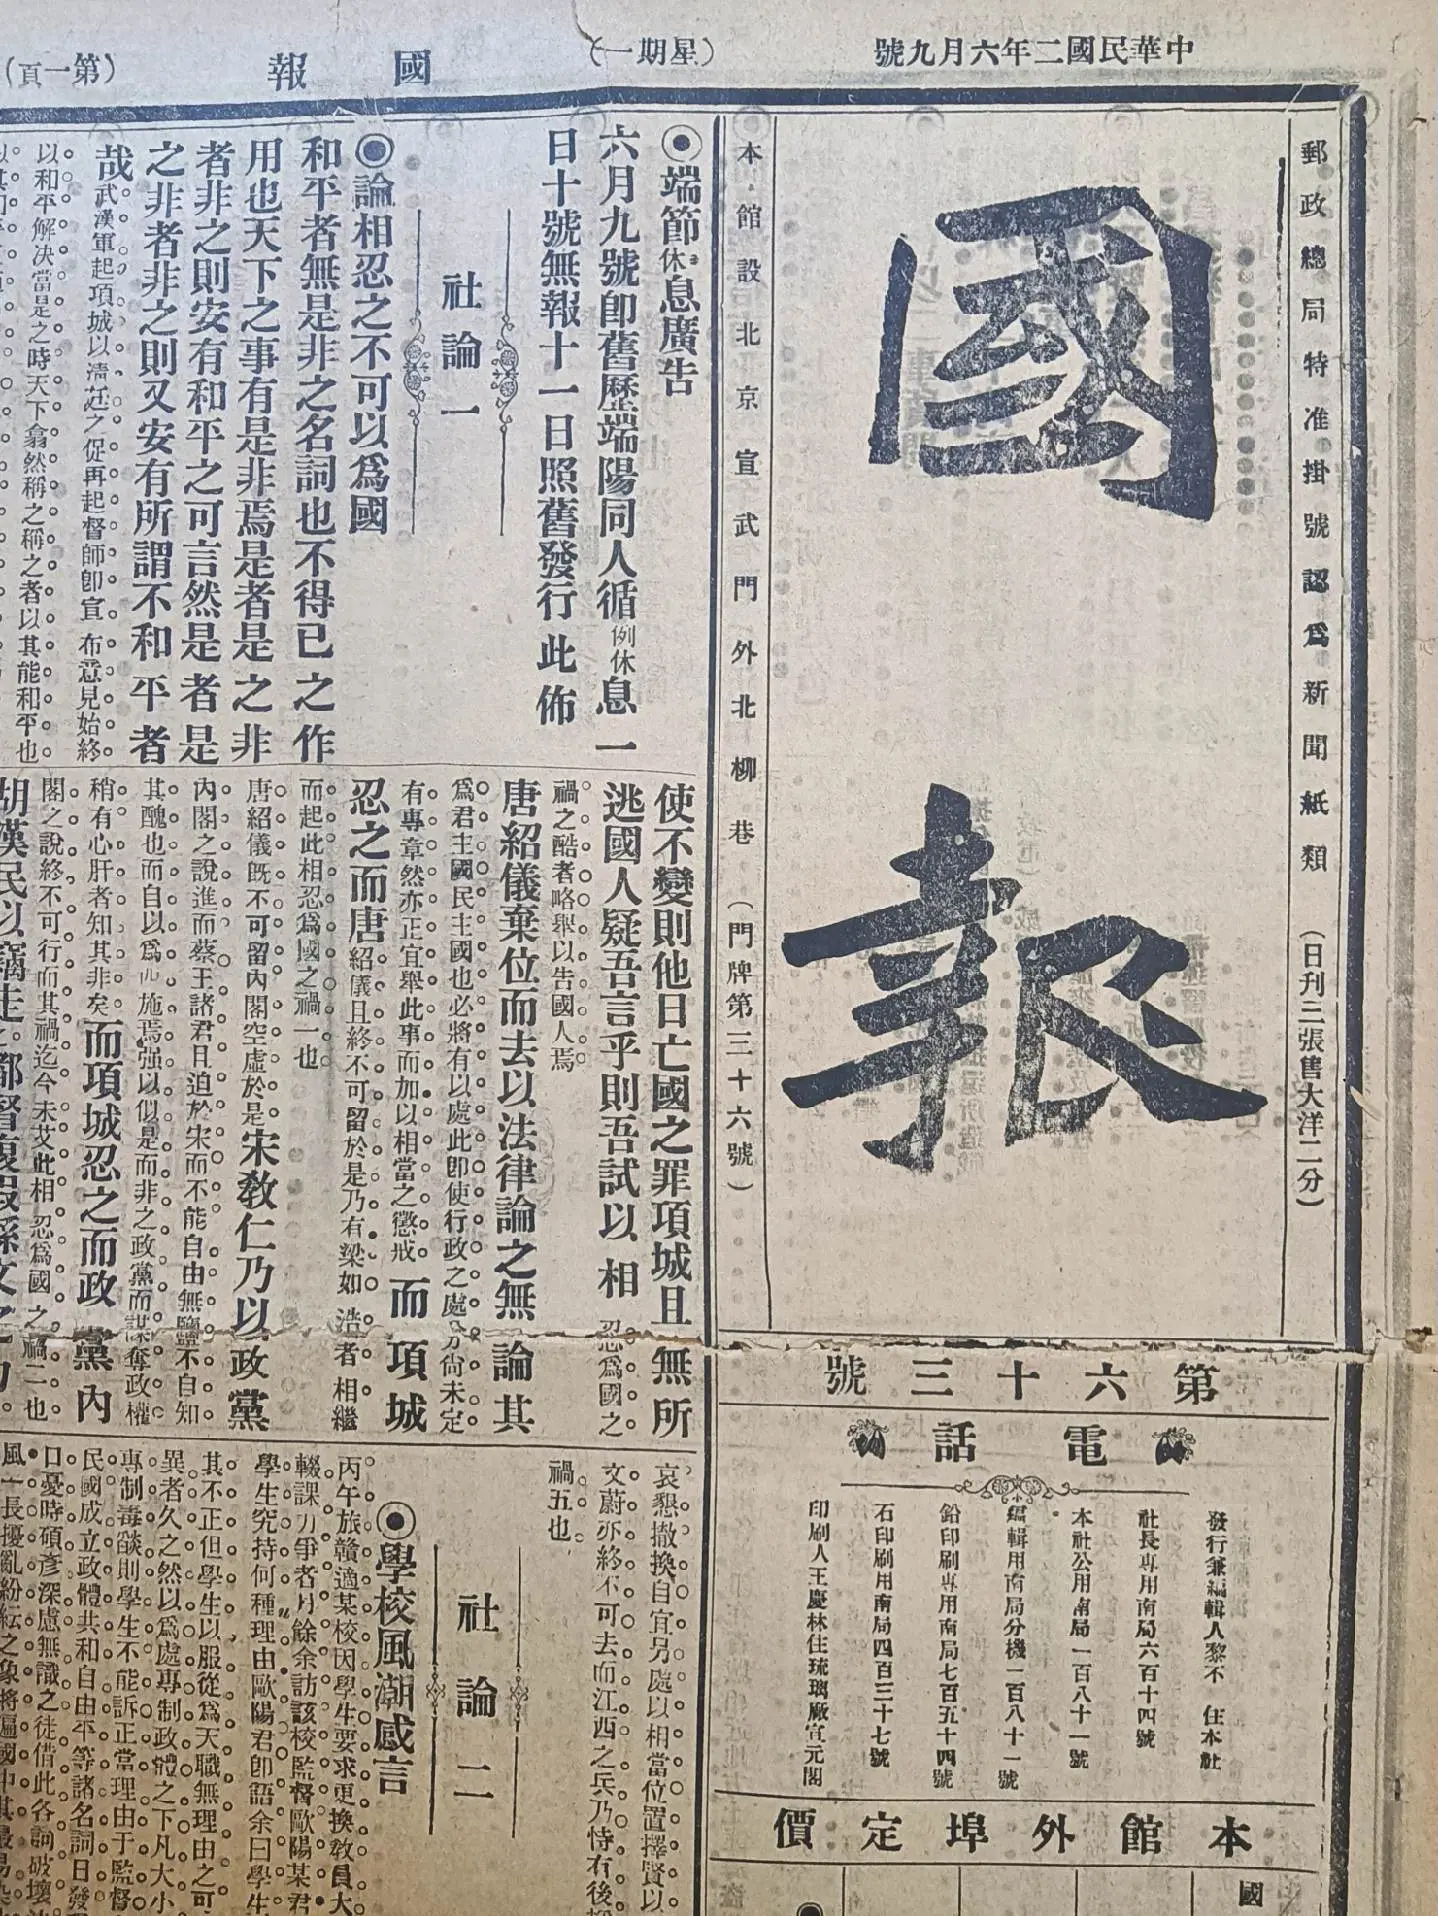 中華民國二年六月九號
（星期一）
國報
（第一頁）
郵政總局特准掛號認爲新聞紙類（日刊三張售大洋二分）
國報
本館設北京宣武門外北柳巷（門牌第三十六號）
第六十三號
電話
發行兼編輯人黎不　住本社
社長專用南局六百十四號
本社公用南局一百八十一號
編輯用南局分機一百八十一號
鉛印刷專用南局七百五十四號
石印刷用南局四百三十七號
印刷人王慶林住琉璃廠宣元閣
本館外埠定價
國
◉端節休息廣告
六月九號卽舊歷端陽同人循例休息一
日十號無報十一日照舊發行此佈
社論一
◉論相忍之不可以爲國
和平者無是非之名詞也不得已之作
用也天下之事有是非焉是者是之非
者非之則安有和平之可言然是者是
之非者非之則又安有所謂不和平者
哉武漢軍起項城以淸廷之促再起督師卽宣布意見始終
以和平解決當是之時天下翕然稱之稱之者以其能和平也
使不變則他日亡國之罪項城且無所
逃國人疑吾言乎則吾試以相忍爲國之
禍之酷者略舉以告國人焉
唐紹儀棄位而去以法律論之無論其
爲君主國民主國也必將有以處此卽使行政之處分尙未定
有專章然亦正宜舉此事而加以相當之懲戒而項城
忍之而唐紹儀且終不可留於是乃有梁如浩者相繼
而起此相忍爲國之禍一也
唐紹儀旣不可留內閣空虛於是宋敎仁乃以政黨
內閣之說進而蔡王諸君且迫於宋而不能自由無鹽不自知
其醜也而自以爲西施焉强以似是而非之政黨而謀奪政權
稍有心肝者知其非矣而項城忍之而政黨內
閣之說終不可行而其禍迄今未艾此相忍爲國之禍二也
胡漢民以竊
哀懇撤換自宜另處以相當位置擇賢以
文蔚亦終不可去而江西之兵乃恃有後
禍五也
社論二
◉學校風潮感言
丙午旅贛適某校因學生要求更換敎員大
輟課力爭者月餘余訪該校監督歐陽某君
學生究持何種理由歐陽君卽語余曰學生
其不正但學生以服從爲天職無理由之可
異者久之然以爲處專制政體之下凡大小
專制毒燄則學生不能訴正當理由于監督
民國成立政體共和自由平等諸名詞日發
口憂時碩彥深慮無識之徒借此各詞破壞
風一長擾亂紛紜之象將遍國中其最易染